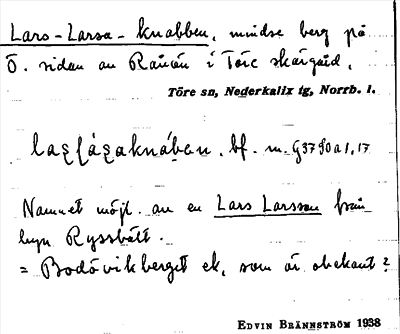 Lars-Larsa-knabben, mindre berg på
Ö. sidan av Rånön i Töre skärgård.
Töre sn, Nederkalix tg, Norrb. l.
bf. m.
Namnet möjl. av en Lars Larsson från
byn Ryssbält.
= Bodöviksberget ek, som är obekant?
EDVIN BRÄNNSTRÖM 1938